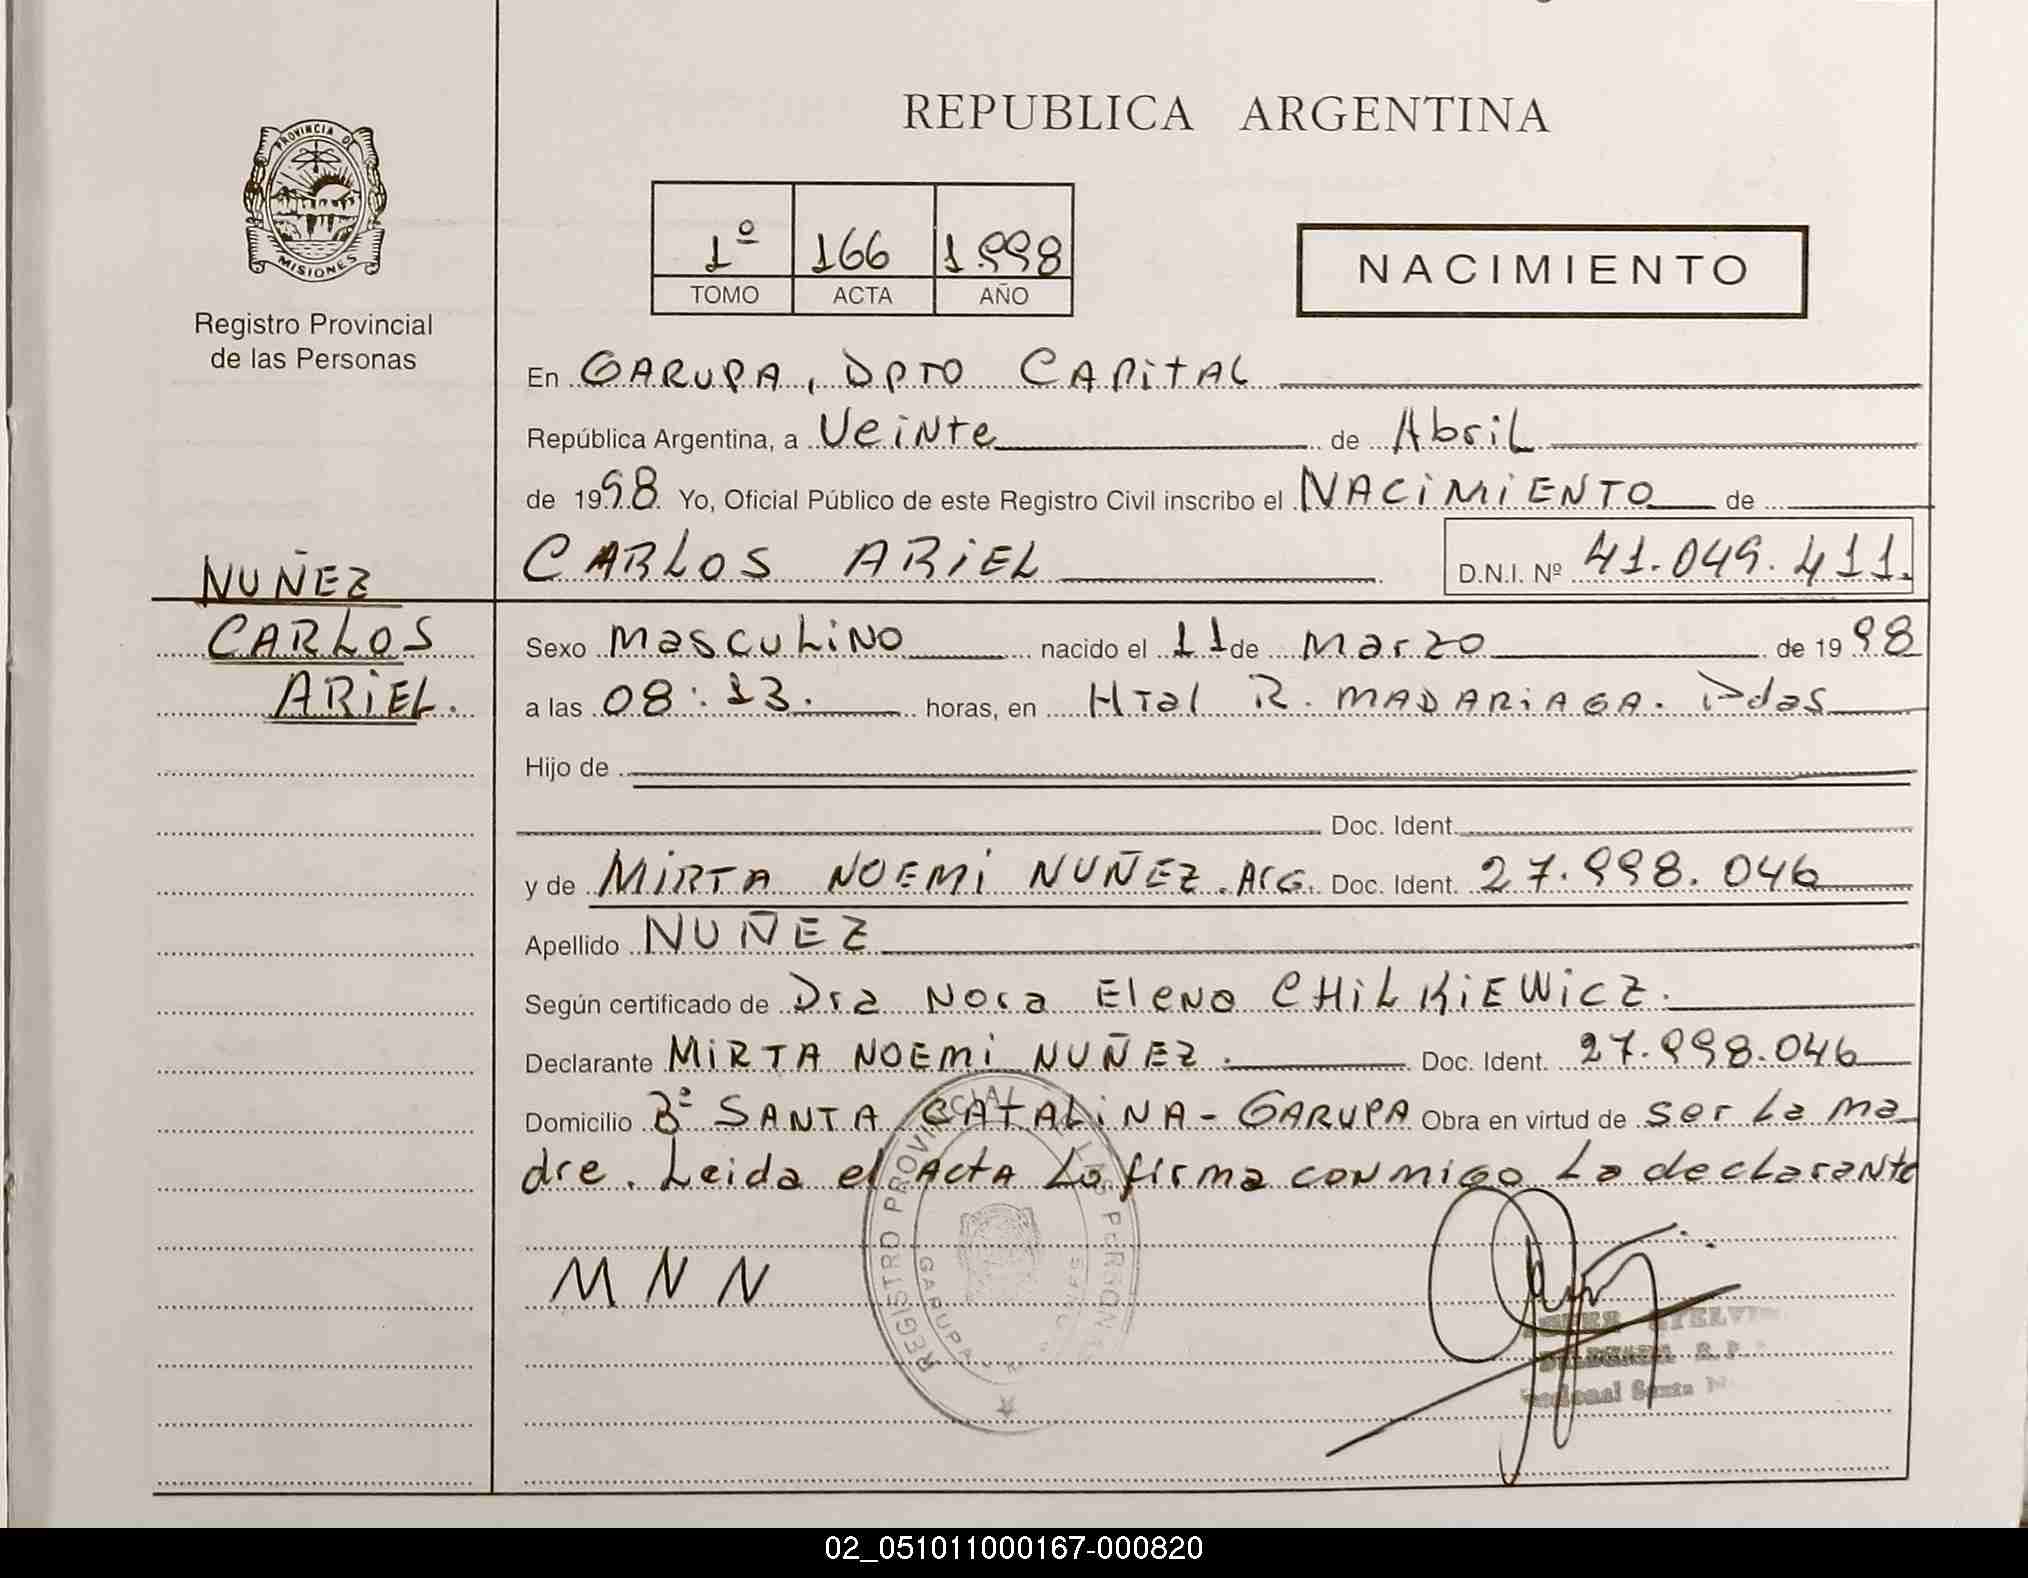 REPUBLICA ARGENTINA
PROVINCIA DE
MISIONES
Registro Provincial
de las Personas
1º 166 1.998
TOMO ACTA AÑO
NACIMIENTO
En GARUPA, DPTO CAPITAL
República Argentina, a Veinte de Abril
de 1998. Yo, Oficial Público de este Registro Civil inscribo el NACIMIENTO de
CARLOS ARIEL D.N.I. Nº 41.049.411.
NUÑEZ
CARLOS
ARIEL.
Sexo Masculino nacido el 11 de Marzo de 1998
a las 08:13. horas, en HTal R. MADARIAGA. Pdas
Hijo de
Doc. Ident.
y de MIRTA NOEMI NUÑEZ. Arg. Doc. Ident. 27.998.046
Apellido NUÑEZ
Según certificado de Dra Nora Elena CHILKIEWICZ.
Declarante MIRTA NOEMI NUÑEZ. Doc. Ident. 27.998.046
Domicilio Bº SANTA CATALINA - GARUPA Obra en virtud de ser la ma
dre. Leida el Acta La firma conmigo La declarante
M N N
REGISTRO PROVINCIAL DE LAS PERSONAS
GARUPA
02_051011000167-000820